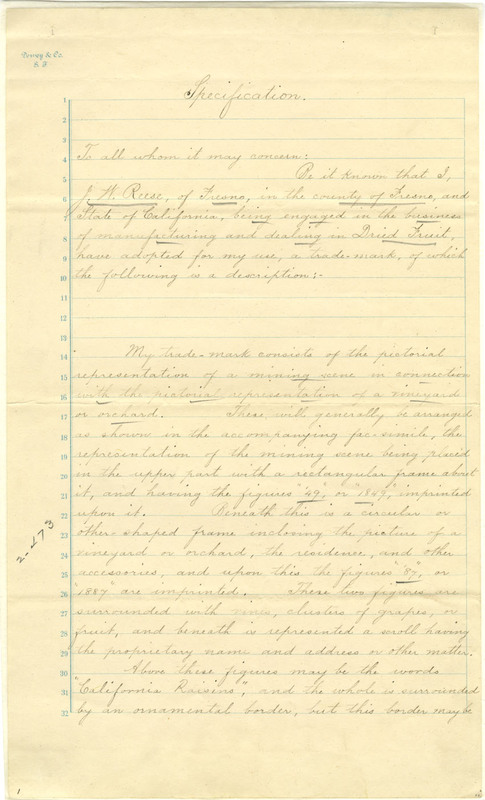 Dewey & Co.
S. F.
Specification.
1
2
3
4 To all whom it may concern:
5 Be it known that I,
6 J. W. Reese, of Fresno, in the county of Fresno, and
7 State of California, being engaged in the business
8 of manufacturing and dealing in Dried Fruit,
9 have adopted for my use, a trade-mark, of which
10 the following is a description:-
11
12
13
14 My trade-mark consists of the pictorial
15 representation of a mining scene in connection
16 with the pictorial representation of a vineyard
17 or orchard. These will generally be arranged
18 as shown in the accompanying fac-simile, the
19 representation of the mining scene being placed
20 in the upper part with a rectangular frame about
21 it, and having the figures "49," or "1849," imprinted
22 upon it. Beneath this is a circular or
23 other shaped frame inclosing the picture of a
24 vineyard or orchard, the residence, and other
25 accessories, and upon this the figures "87," or
26 "1887" are imprinted. These two figures are
27 surrounded with vines, clusters of grapes, or
28 fruit, and beneath is represented a scroll having
29 the proprietary name and address or other matter.
30 Above these figures may be the words
31 "California Raisins," and the whole is surrounded
32 by an ornamental border, but this border may be
2-473
1